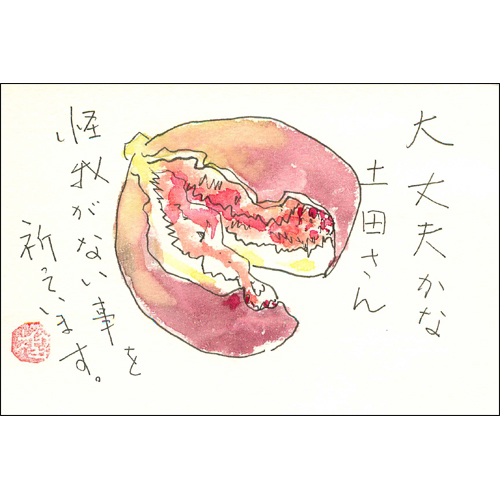 大丈夫かな
土田さん
怪我がない事を
祈っています。